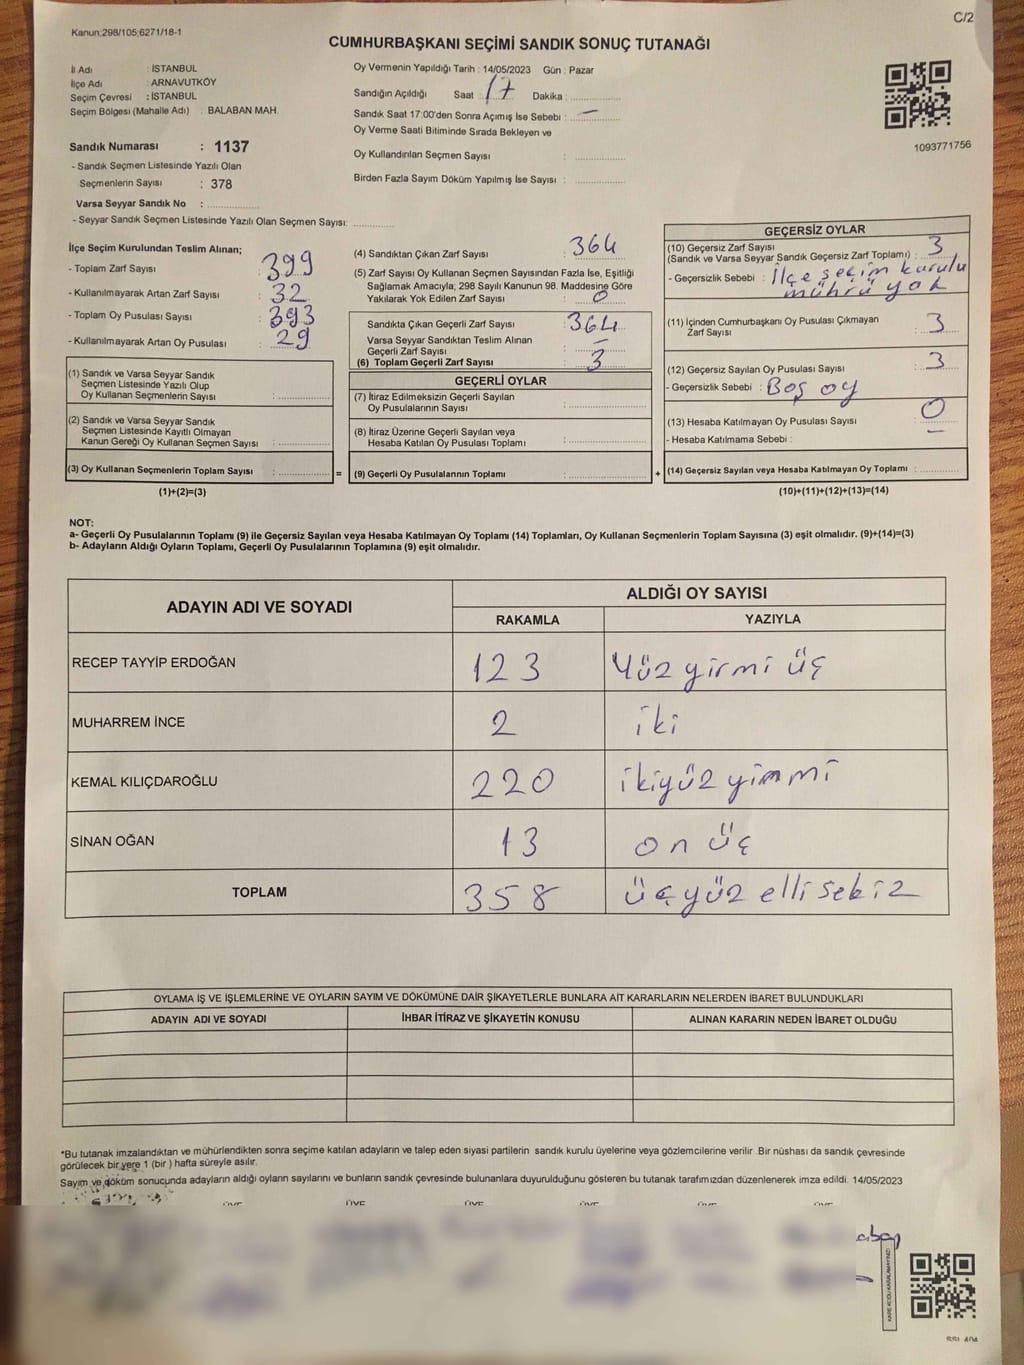 Kanun;298/105;6271/18-1
C/2
CUMHURBAŞKANI SEÇİMİ SANDIK SONUÇ TUTANAĞI
İl Adı : İSTANBUL
İlçe Adı : ARNAVUTKÖY
Seçim Çevresi : İSTANBUL
Seçim Bölgesi (Mahalle Adı) : BALABAN MAH.
Sandık Numarası : 1137
- Sandık Seçmen Listesinde Yazılı Olan
Seçmenlerin Sayısı : 378
Varsa Seyyar Sandık No :
- Seyyar Sandık Seçmen Listesinde Yazılı Olan Seçmen Sayısı:
Oy Vermenin Yapıldığı Tarih : 14/05/2023 Gün : Pazar
Sandığın Açıldığı Saat : 17 Dakika :
Sandık Saat 17:00'den Sonra Açımış İse Sebebi : –
Oy Verme Saati Bitiminde Sırada Bekleyen ve
Oy Kullandırılan Seçmen Sayısı :
Birden Fazla Sayım Döküm Yapılmış İse Sayısı :
1093771756
İlçe Seçim Kurulundan Teslim Alınan;
- Toplam Zarf Sayısı : 399
- Kullanılmayarak Artan Zarf Sayısı : 32
- Toplam Oy Pusulası Sayısı : 393
- Kullanılmayarak Artan Oy Pusulası : 29
(1) Sandık ve Varsa Seyyar Sandık
Seçmen Listesinde Yazılı Olup
Oy Kullanan Seçmenlerin Sayısı :
(2) Sandık ve Varsa Seyyar Sandık
Seçmen Listesinde Kayıtlı Olmayan
Kanun Gereği Oy Kullanan Seçmen Sayısı :
(3) Oy Kullanan Seçmenlerin Toplam Sayısı : =
(1)+(2)=(3)
(4) Sandıktan Çıkan Zarf Sayısı : 364
(5) Zarf Sayısı Oy Kullanan Seçmen Sayısından Fazla İse, Eşitliği
Sağlamak Amacıyla; 298 Sayılı Kanunun 98. Maddesine Göre
Yakılarak Yok Edilen Zarf Sayısı : 0
Sandıkta Çıkan Geçerli Zarf Sayısı : 364
Varsa Seyyar Sandıktan Teslim Alınan
Geçerli Zarf Sayısı : –
(6) Toplam Geçerli Zarf Sayısı : 3
GEÇERLİ OYLAR
(7) İtiraz Edilmeksizin Geçerli Sayılan
Oy Pusulalarının Sayısı :
(8) İtiraz Üzerine Geçerli Sayılan veya
Hesaba Katılan Oy Pusulası Toplamı :
(9) Geçerli Oy Pusulalarının Toplamı : +
GEÇERSİZ OYLAR
(10) Geçersiz Zarf Sayısı
(Sandık ve Varsa Seyyar Sandık Geçersiz Zarf Toplamı) : 3
- Geçersizlik Sebebi : İlçe seçim kurulu
mührü yok
(11) İçinden Cumhurbaşkanı Oy Pusulası Çıkmayan
Zarf Sayısı : 3
(12) Geçersiz Sayılan Oy Pusulası Sayısı : 3
- Geçersizlik Sebebi : Boş oy
(13) Hesaba Katılmayan Oy Pusulası Sayısı : 0
- Hesaba Katılmama Sebebi : –
(14) Geçersiz Sayılan veya Hesaba Katılmayan Oy Toplamı :
(10)+(11)+(12)+(13)=(14)
NOT:
a- Geçerli Oy Pusulalarının Toplamı (9) ile Geçersiz Sayılan veya Hesaba Katılmayan Oy Toplamı (14) Toplamları, Oy Kullanan Seçmenlerin Toplam Sayısına (3) eşit olmalıdır. (9)+(14)=(3)
b- Adayların Aldığı Oyların Toplamı, Geçerli Oy Pusulalarının Toplamına (9) eşit olmalıdır.
ADAYIN ADI VE SOYADI ALDIĞI OY SAYISI
RAKAMLA YAZIYLA
RECEP TAYYİP ERDOĞAN 123 Yüz yirmi üç
MUHARREM İNCE 2 iki
KEMAL KILIÇDAROĞLU 220 ikiyüz yimmi
SİNAN OĞAN 13 on üç
TOPLAM 358 üçyüz elli sekiz
OYLAMA İŞ VE İŞLEMLERİNE VE OYLARIN SAYIM VE DÖKÜMÜNE DAİR ŞİKAYETLERLE BUNLARA AİT KARARLARIN NELERDEN İBARET BULUNDUKLARI
ADAYIN ADI VE SOYADI İHBAR İTİRAZ VE ŞİKAYETİN KONUSU ALINAN KARARIN NEDEN İBARET OLDUĞU
*Bu tutanak imzalandıktan ve mühürlendikten sonra seçime katılan adayların ve talep eden siyasi partilerin sandık kurulu üyelerine veya gözlemcilerine verilir. Bir nüshası da sandık çevresinde
görülecek bir yere 1 (bir ) hafta süreyle asılır.
Sayım ve döküm sonucunda adayların aldığı oyların sayılarını ve bunların sandık çevresinde bulunanlara duyurulduğunu gösteren bu tutanak tarafımızdan düzenlenerek imza edildi. 14/05/2023
ÜYE ÜYE ÜYE ÜYE ÜYE ÜYE
KARE KODU KARALAMAYINIZ!